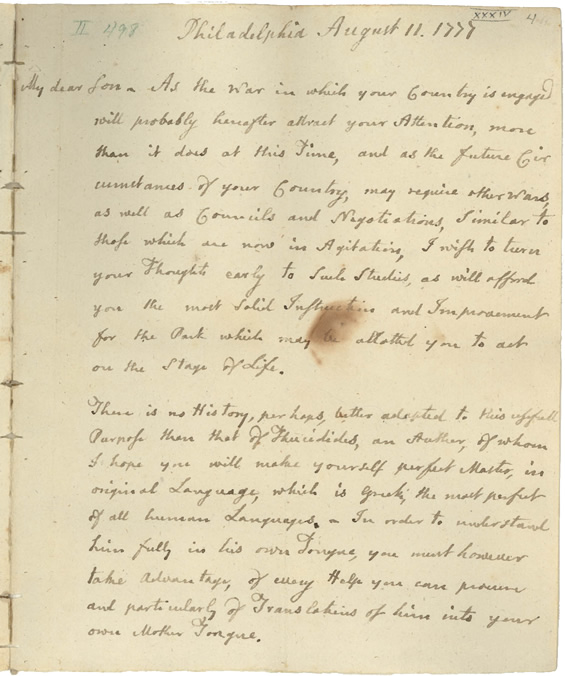 II 498
XXXIV 4
Philadelphia August 11. 1777
My dear Son - As the War in which your Country is engaged
will probably hereafter attract your Attention, more
than it does at this Time, and as the future Cir
cumstances of your Country, may require other Wars,
as well as Councils and Negotiations, Similar to
those which are now in Agitation, I wish to turn
your Thoughts early to Such Studies, as will afford
you the most Solid Instruction and Improvement
for the Part which may be allotted you to act
on the Stage of Life.
There is no History, perhaps, better adapted to this usefull
Purpose than that of Thucidides, an Author, of whom
I hope you will make yourself perfect Master, in
original Language, which is Greek, the most perfect
of all human Languages. - In order to understand
him fully in his own Tongue, you must however
take Advantage, of every Help you can procure
and particularly of Translations of him into your
own Mother Tongue.